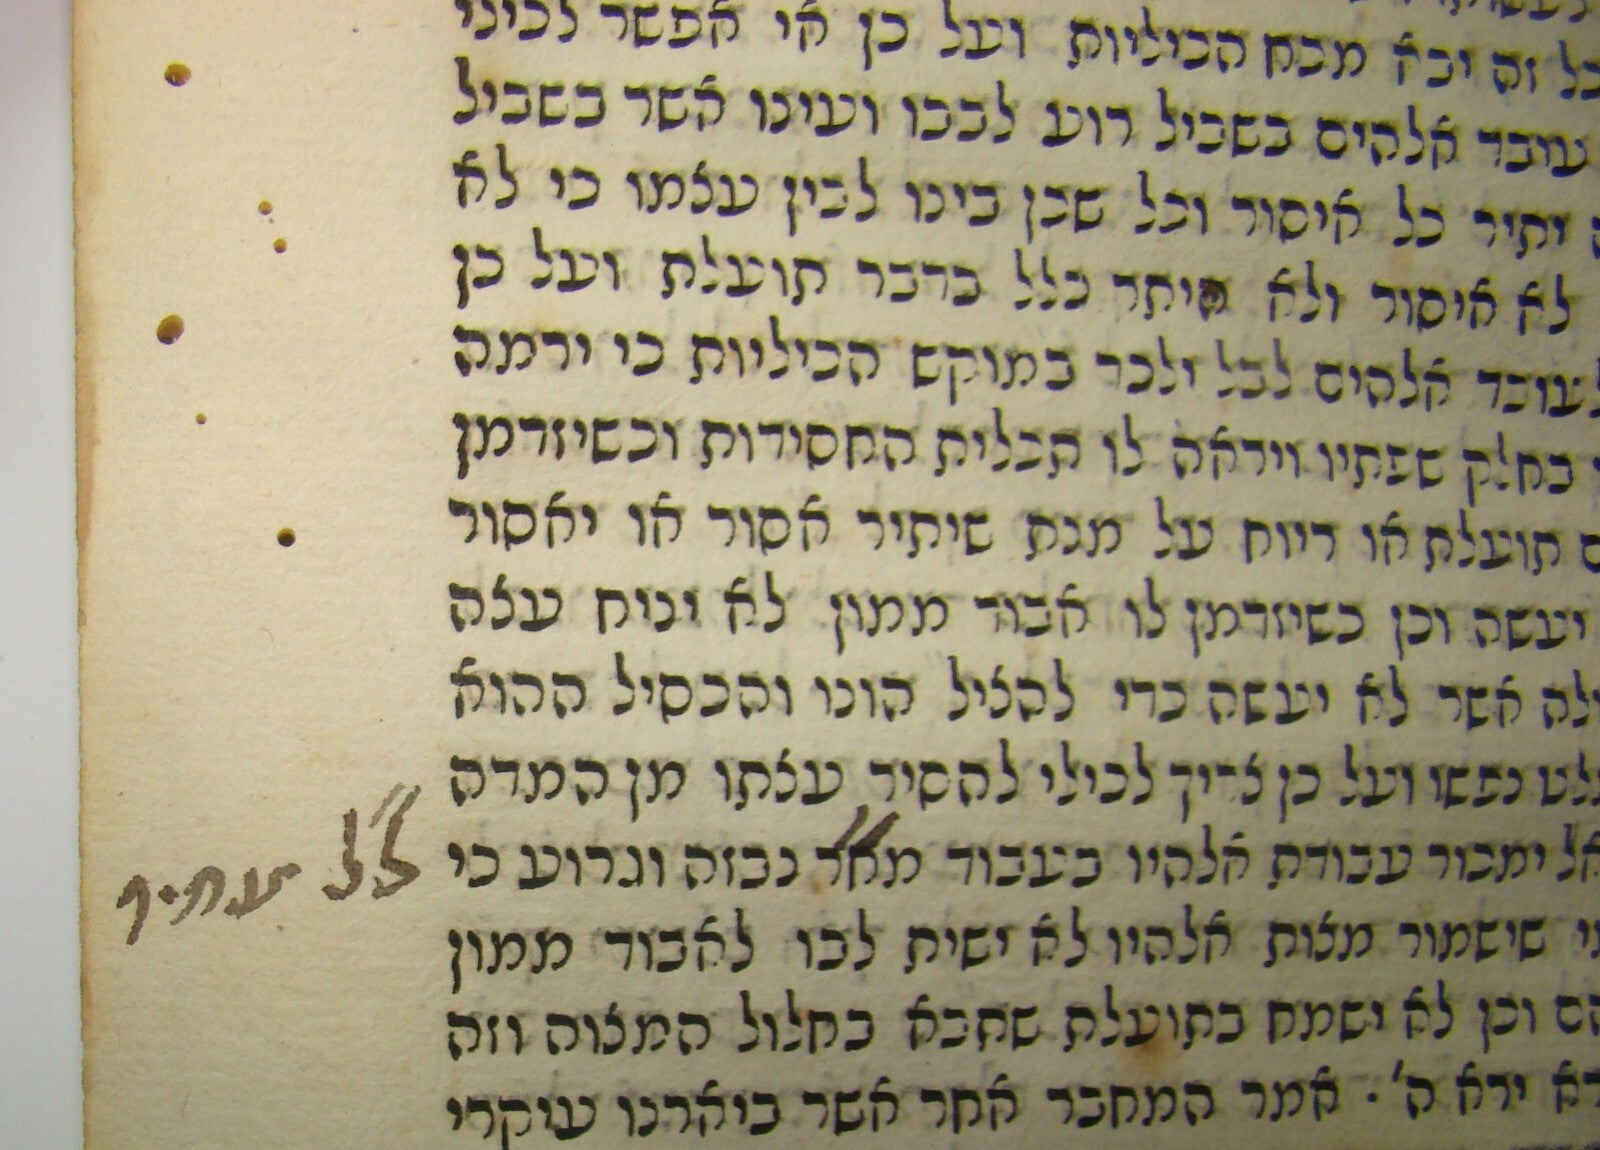 כל זה יבא מכח הכיליות ועל כן אי אפשר לכילי
עובד אלהים בשביל רוע לבבו ועינו אשר בשביל
יתיר כל איסור וכל שכן בינו לבין עצמו כי לא
לא איסור ולא היתר כלל בדבר תועלת ועל כן
לעובד אלהים לבל ילכד במוקש הכיליות כי ירמה
בחלק שפתיו ויראה לו תכלית החסידות וכשיזדמן
תועלת או ריוח על מנת שיתיר אסור או יאסור
יעשה וכן כשיזדמן לו אבוד ממון לא יניח עצה
אשר לא יעשה כדי להציל הונו והכסיל ההוא
נפשו ועל כן צריך לכילי להסיר עצתו מן המדה
ימכור עבודת אלהיו בעבור מאד נבזה וגרוע כי
שישמור מצות אלהיו לא ישית לבו לאבוד ממון
וכן לא ישמח בתועלת שתבא בחלול המצוה וזה
ירא ה'. אמר המחבר אחר אשר ביארנו עיקרי